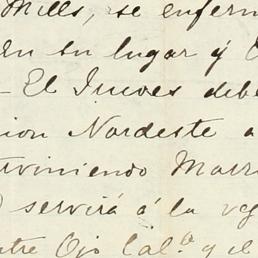 Mills, se enferm
En su lugar y C
- El Jueves debe
ion Nordeste a
rviniendo Mar
) servirá á la
tre Ojo Cal.ᵉ y el